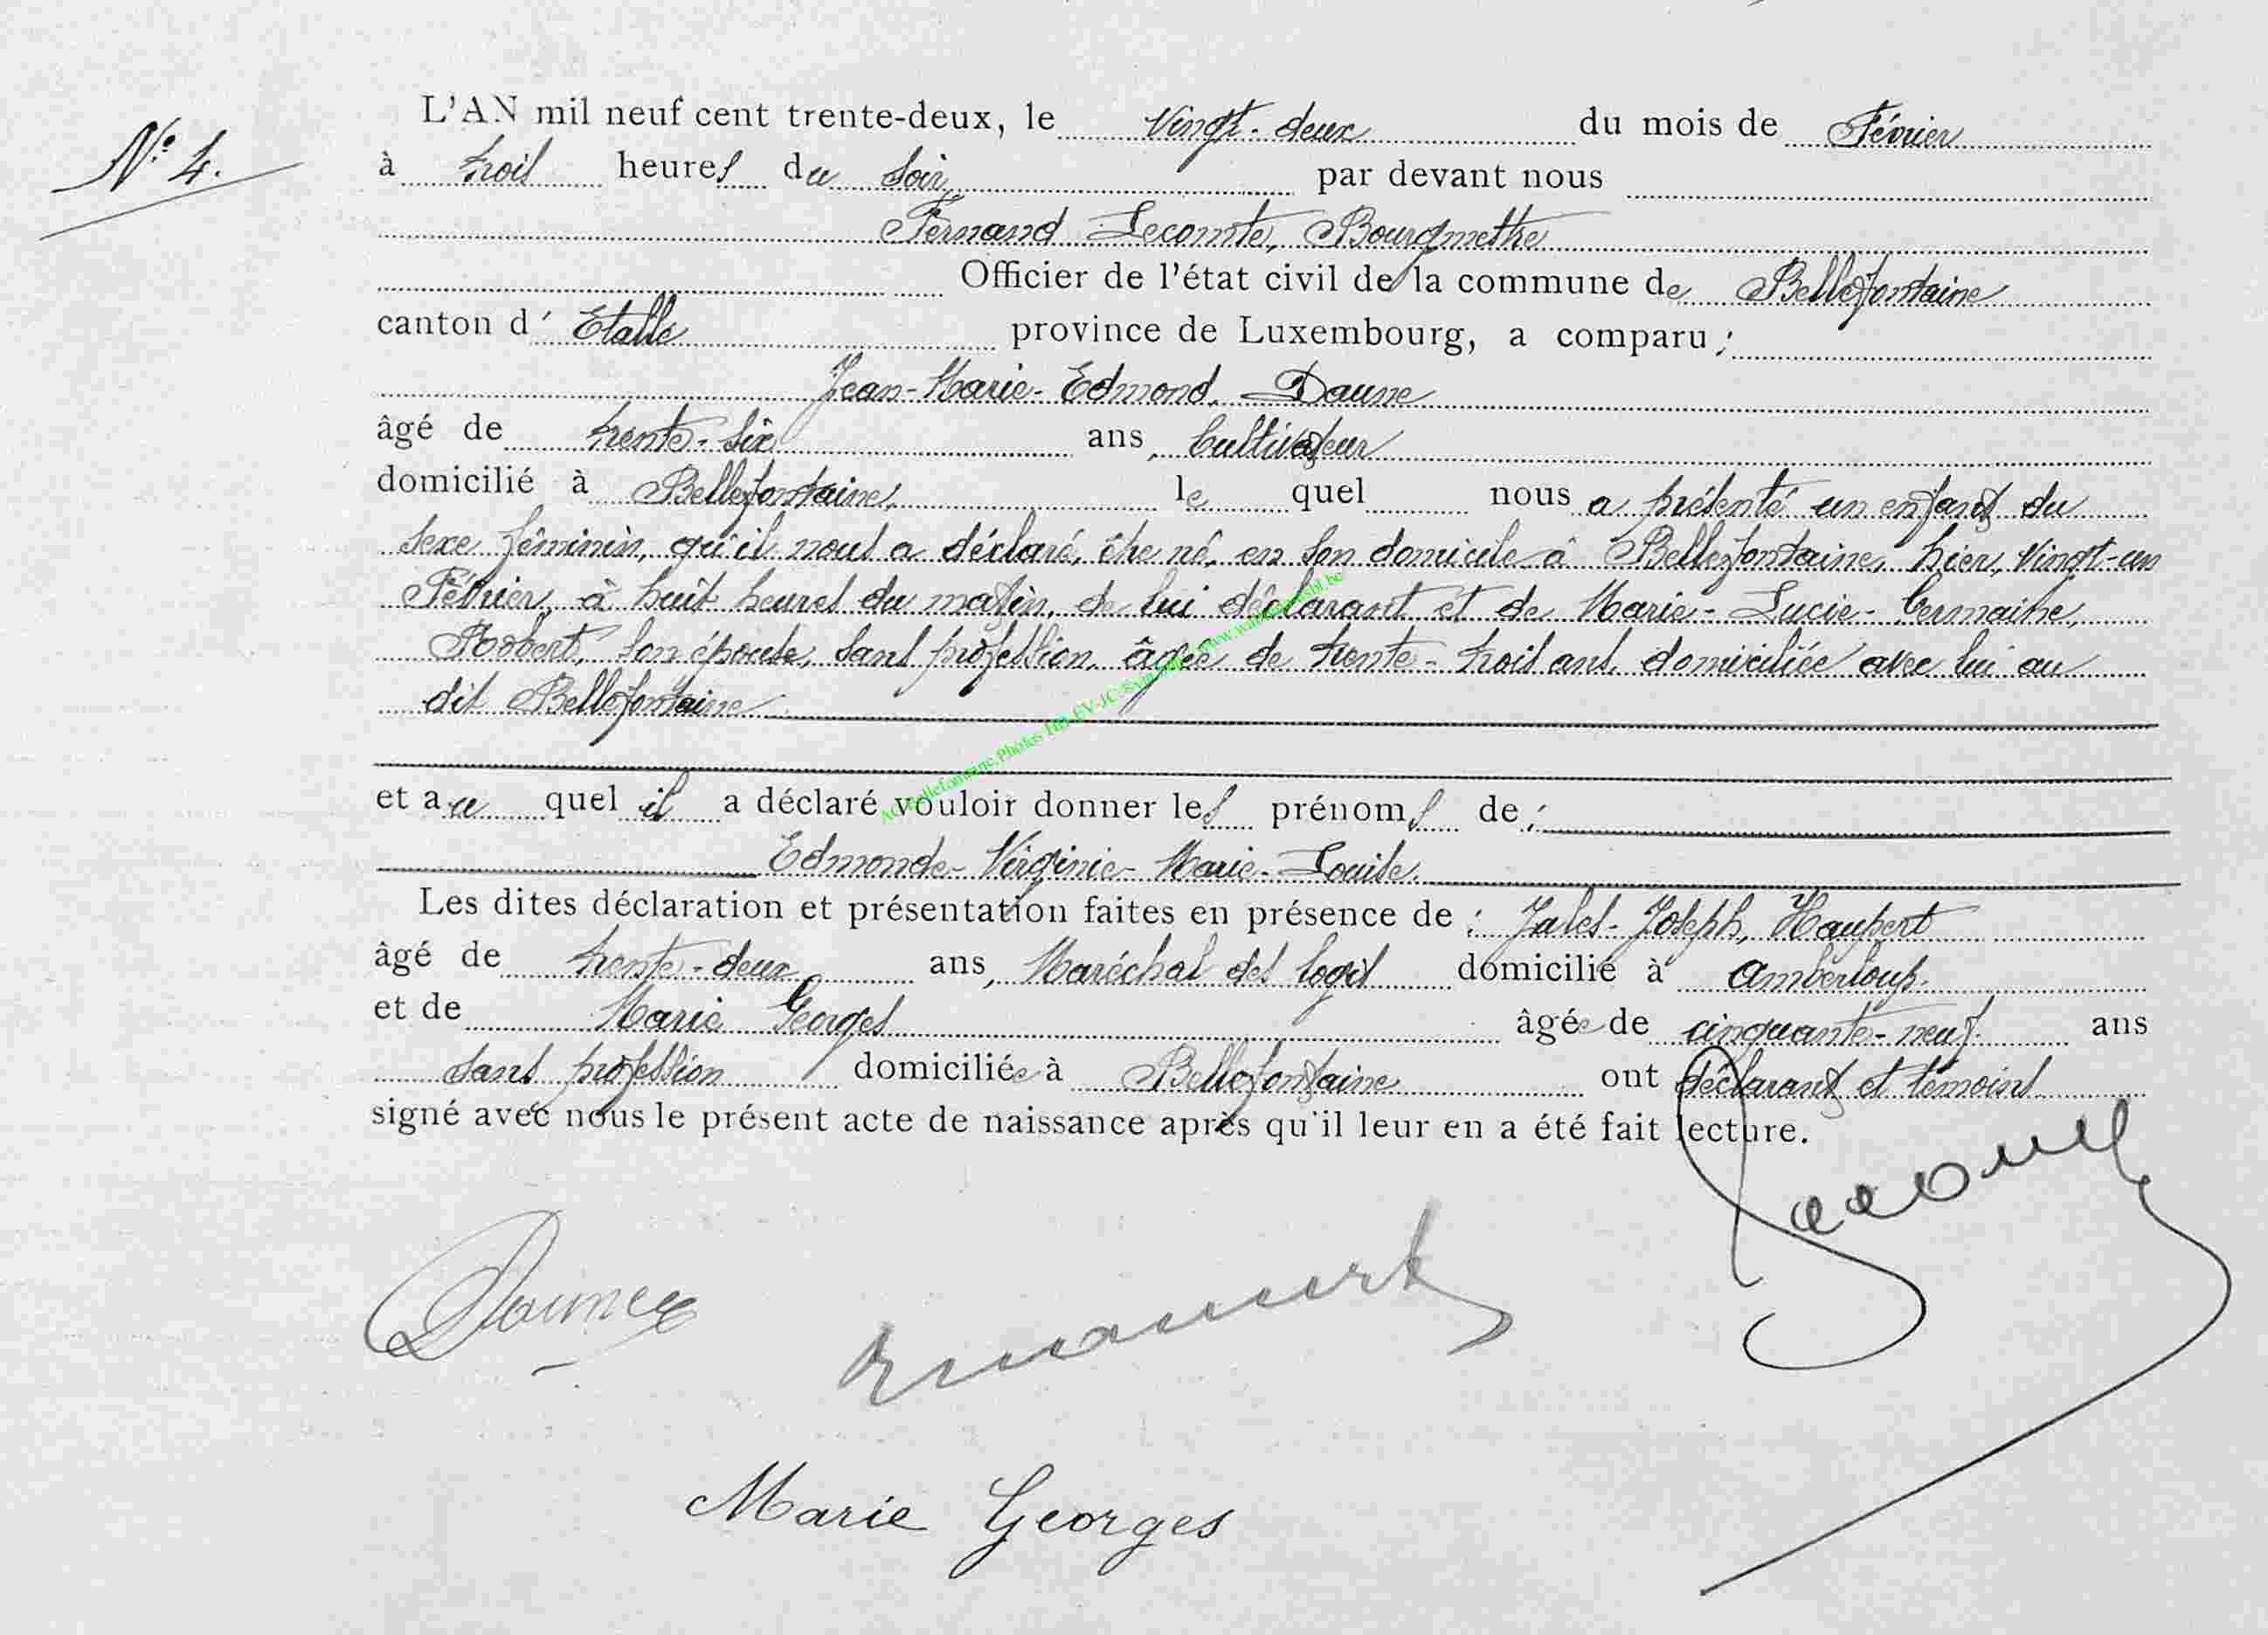 N° 4.
L'AN mil neuf cent trente-deux, le Vingt-deux du mois de Février
à trois heures du soir, par devant nous
Fernand Lecomte, Bourgmestre
Officier de l'état civil de la commune de Bellefontaine
canton d' Etalle province de Luxembourg, a comparu :
Jean-Marie-Edmond, Daune
âgé de trente-six ans, Cultivateur
domicilié à Bellefontaine, le quel nous a présenté un enfant du
sexe féminin, qu'il nous a déclaré, être né, en son domicile à Bellefontaine, hier, Vingt-un
Février, à huit heures du matin, de lui déclarant et de Marie-Lucie-Germaine,
Robert, son épouse, sans profession, âgée de trente-trois ans, domiciliée avec lui au
dit Bellefontaine
et au quel il a déclaré vouloir donner les prénoms de :
Edmonde-Virginie-Marie-Louise.
Les dites déclaration et présentation faites en présence de : Jules-Joseph, Haupert
âgé de trente-deux ans, Maréchal des logis domicilié à Amberloup.
et de Marie Georges âgée de cinquante-neuf ans
sans profession domiciliée à Bellefontaine ont déclarant et témoins
signé avec nous le présent acte de naissance après qu'il leur en a été fait lecture.
Daune
Marie Georges